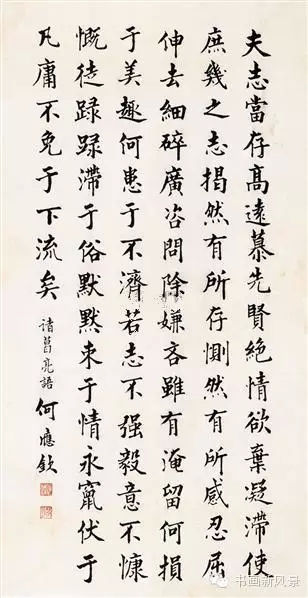 夫志當存高遠慕先賢絕情欲棄凝滯使
庶幾之志揭然有所存惻然有所感忍屈
伸去細碎廣咨問除嫌吝雖有淹留何損
于美趣何患于不濟若志不强毅意不慷
慨徒碌碌滯于俗默默束于情永竄伏于
凡庸不免于下流矣
諸葛亮語 何應欽
书画新风景